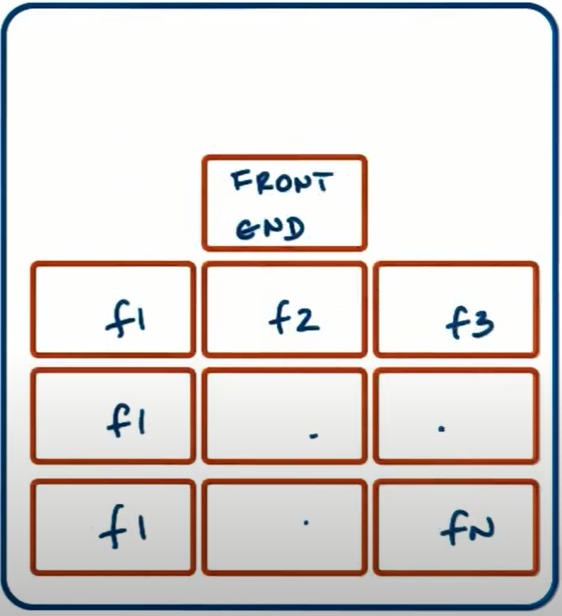 FRONT
END
f1 f2 f3
f1 . .
f1 . fN